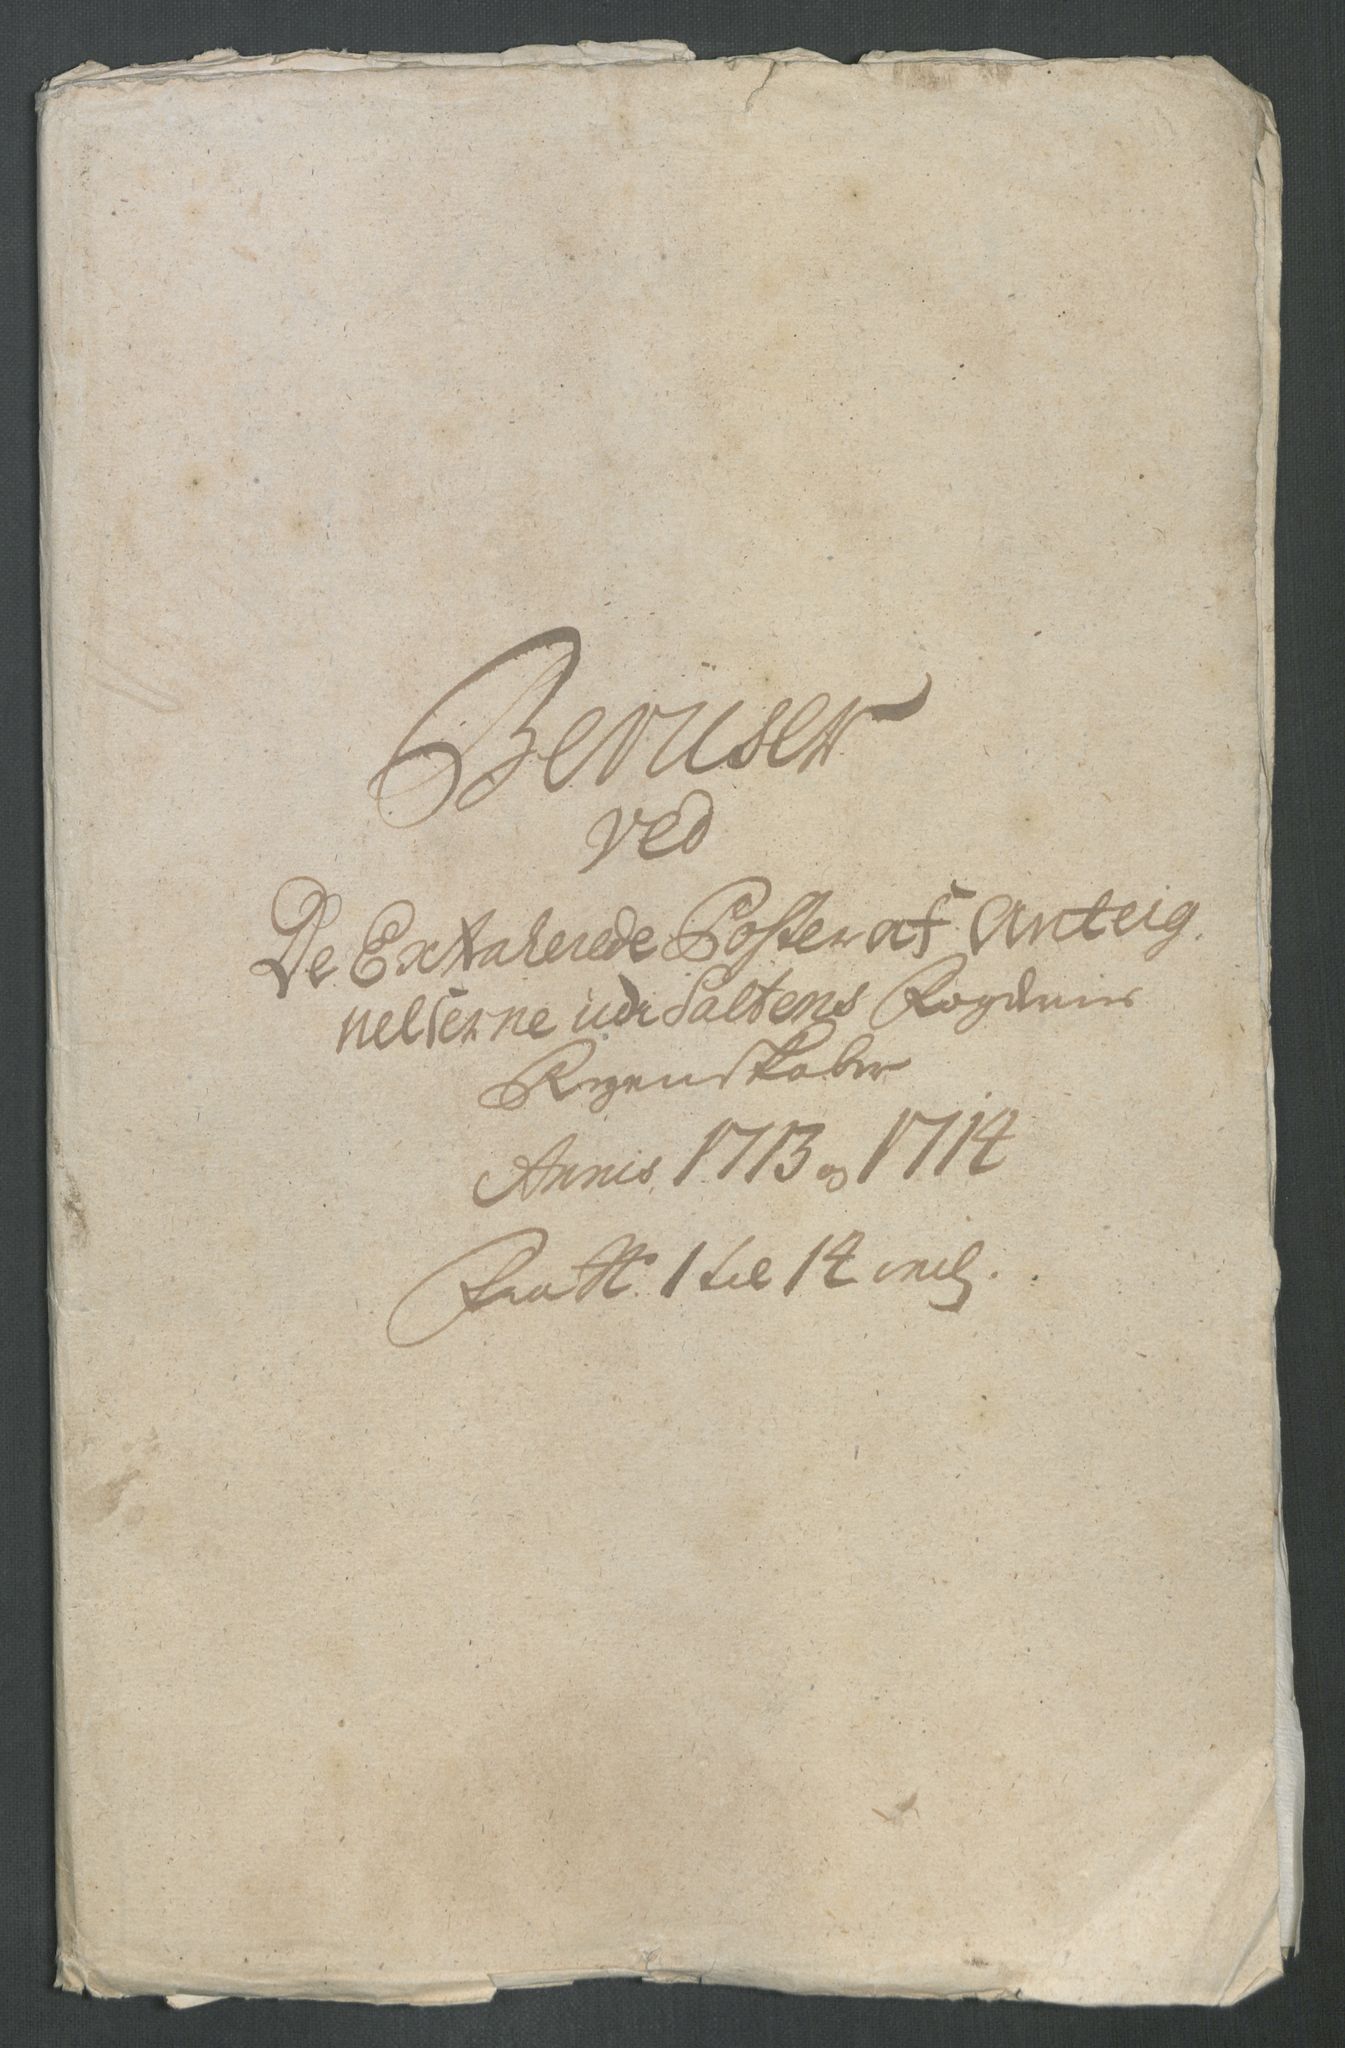 Beviser
ved
De Extraherede Poster af Anteig,
nelserne udi Saltens Fogderies
Regenskaber
Annis 1713 og 1714
Fra N: 1 til 14 incl.